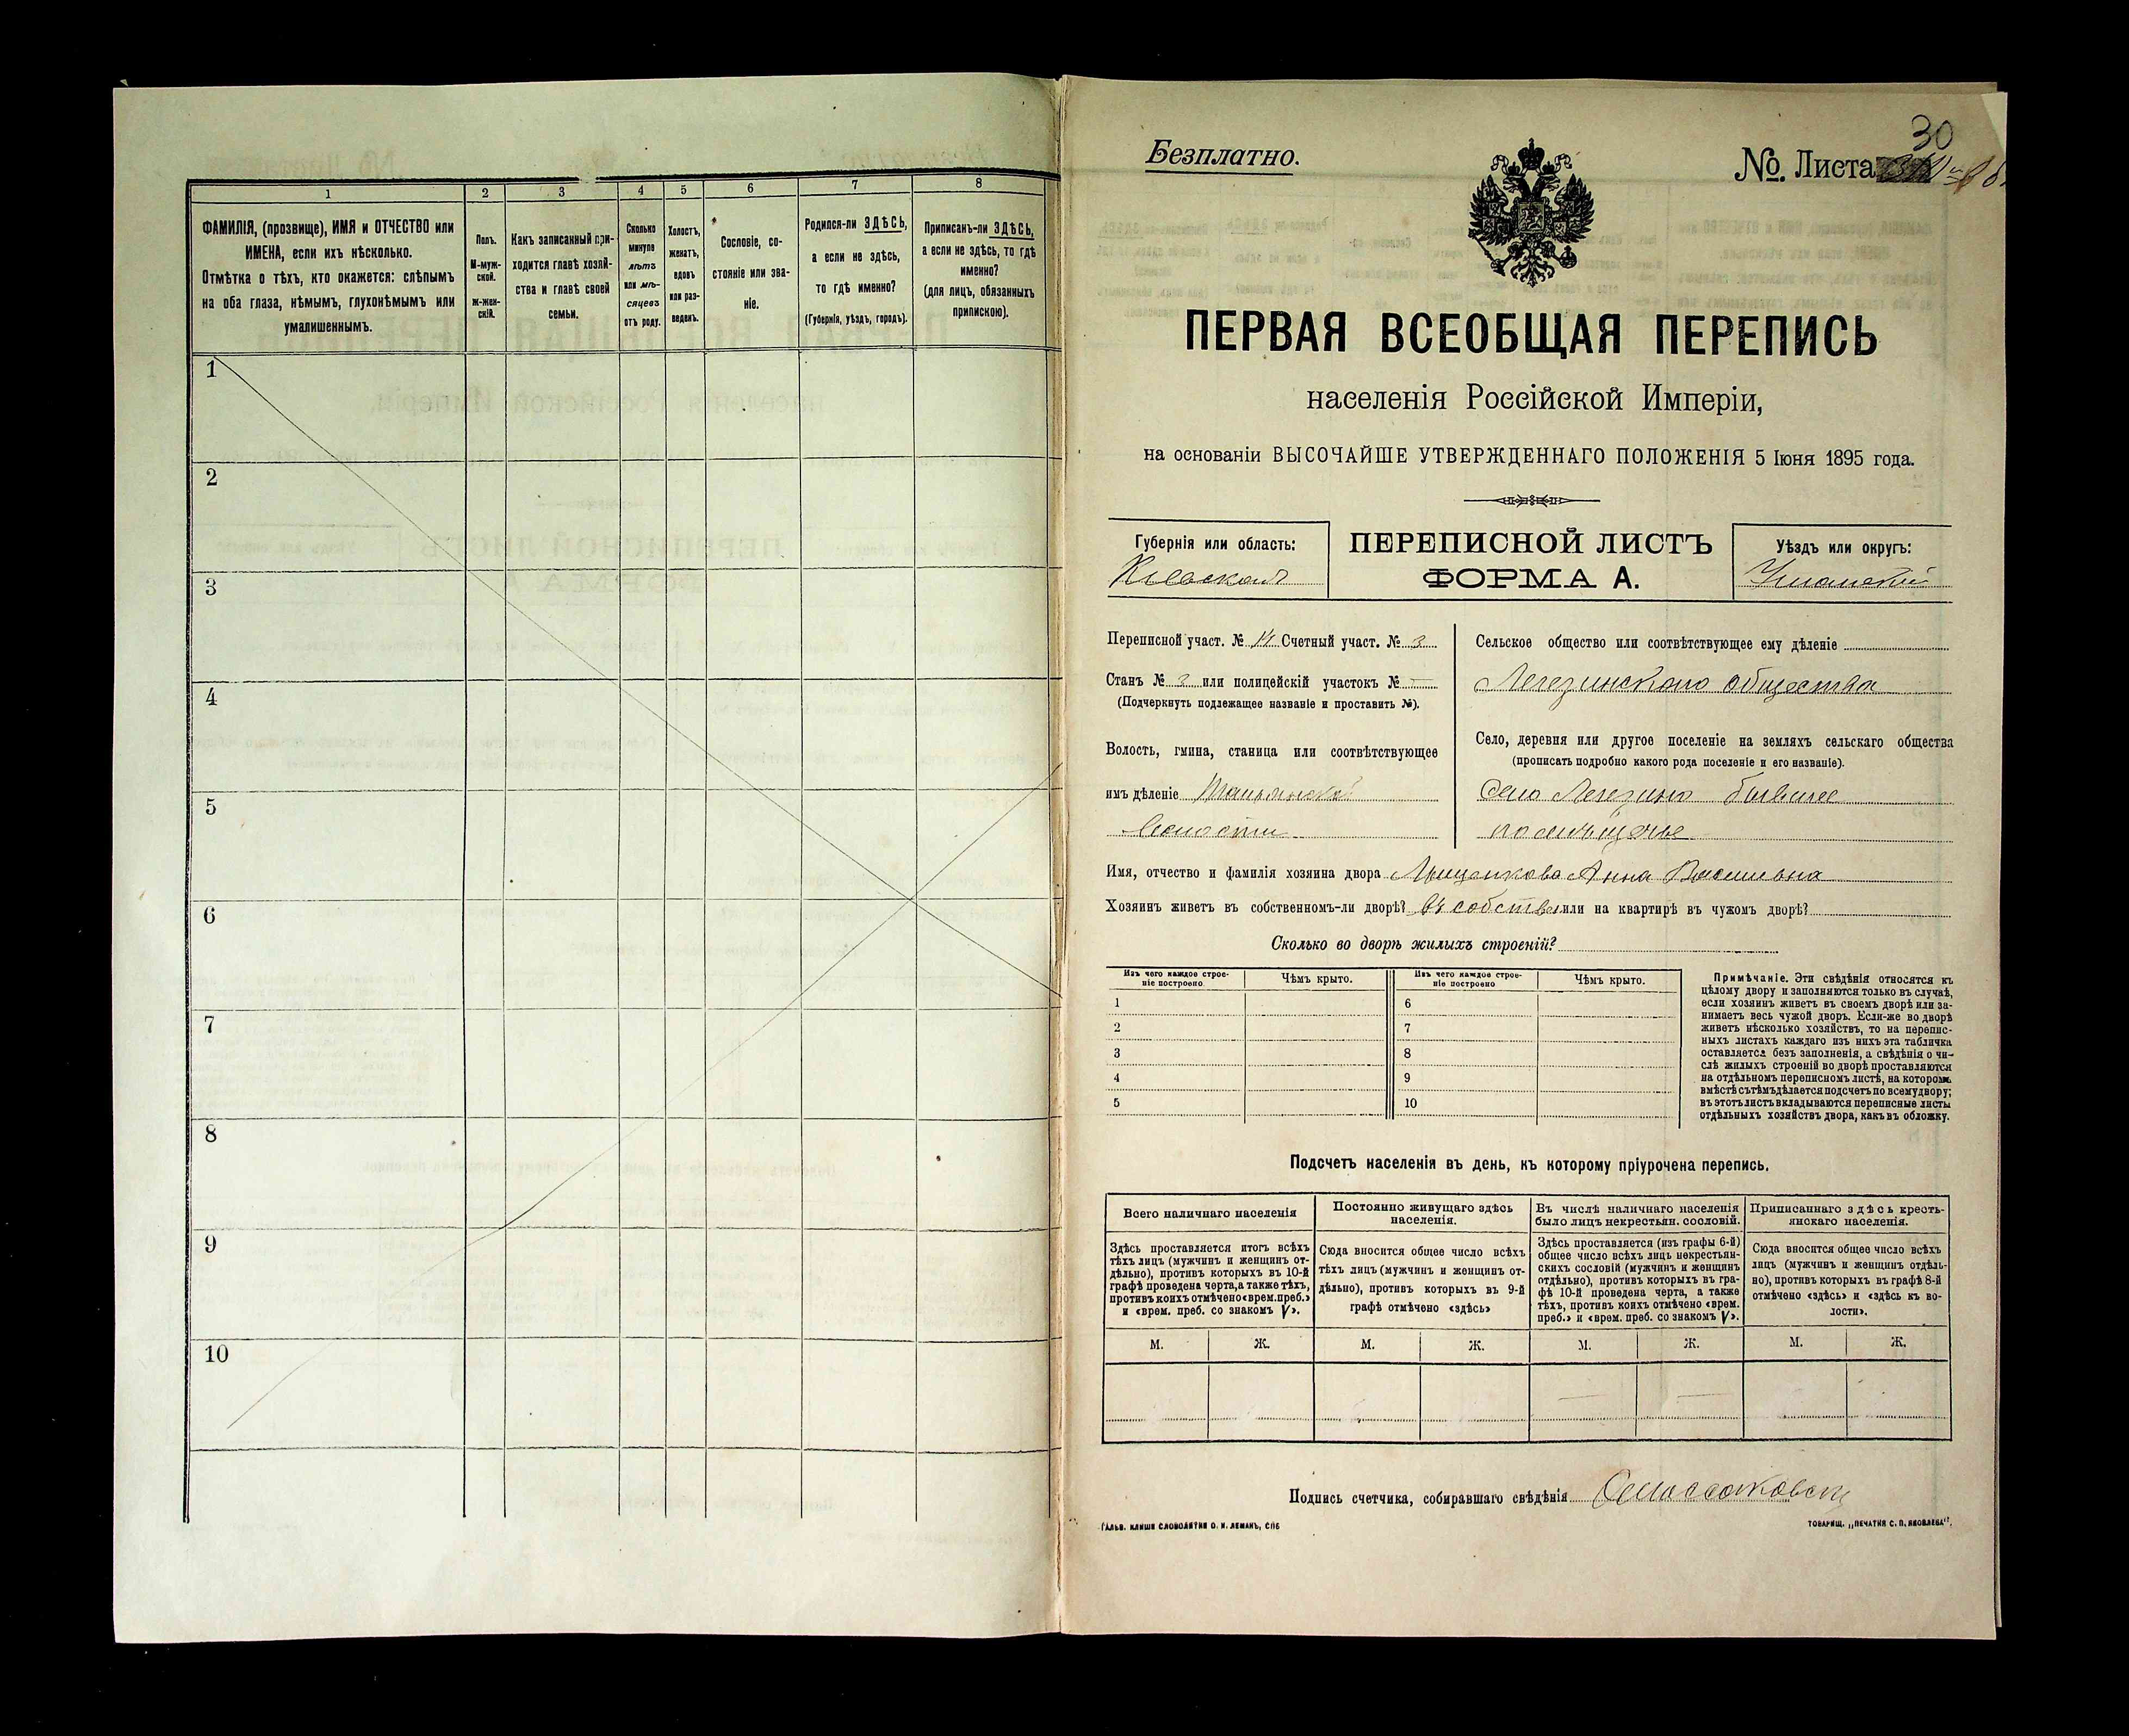 1
2
3
4
5
6
7
8
ФАМИЛІЯ, (прозвище), ИМЯ и ОТЧЕСТВО или
ИМЕНА, если ихъ нѣсколько.
Отмѣтка о тѣхъ, кто окажется: слѣпымъ
на оба глаза, нѣмымъ, глухонѣмымъ или
умалишеннымъ.
Полъ.
М-муж-
ской.
Ж-жен-
скій.
Какъ записанный при-
ходится главѣ хозяй-
ства и главѣ своей
семьи.
Сколько
минуло
лѣтъ
или мѣ-
сяцевъ
отъ роду.
Холостъ,
женатъ,
вдовъ
или раз-
веденъ.
Сословіе, со-
стояніе или зва-
ніе.
Родился-ли ЗДѢСЬ,
а если не здѣсь,
то гдѣ именно?
(Губернія, уѣздъ, городъ).
Приписанъ-ли ЗДѢСЬ,
а если не здѣсь, то гдѣ
именно?
(для лицъ, обязанныхъ
припискою).
1
2
3
4
5
6
7
8
9
10
30
Безплатно.
№. Листа
ПЕРВАЯ ВСЕОБЩАЯ ПЕРЕПИСЬ
населенія Россійской Имперіи,
на основаніи ВЫСОЧАЙШЕ УТВЕРЖДЕННАГО ПОЛОЖЕНІЯ 5 Іюня 1895 года.
Губернія или область:
Кіевская
ПЕРЕПИСНОЙ ЛИСТЪ
ФОРМА А.
Уѣздъ или округъ:
Уманскій
Переписной участ. № 14 Счетный участ. № 3
Станъ № 3 или полицейскій участокъ № —
(Подчеркнуть подлежащее названіе и проставить №).
Волость, гмина, станица или соотвѣтствующее
имъ дѣленіе Тальянской
Волости
Сельское общество или соотвѣтствующее ему дѣленіе
Легезинского общества
Село, деревня или другое поселеніе на земляхъ сельскаго общества
(прописать подробно какого рода поселеніе и его названіе).
Село Легезино бывшее
помѣщичье
Имя, отчество и фамилія хозяина двора Грищенкова Анна Васильевна
Хозяинъ живетъ въ собственномъ-ли дворѣ? въ собств. или на квартирѣ въ чужомъ дворѣ?
Сколько во дворѣ жилыхъ строеній?
Изъ чего каждое строе-
ніе построено
Чѣмъ крыто.
Изъ чего каждое строе-
ніе построено
Чѣмъ крыто.
1
2
3
4
5
6
7
8
9
10
Примѣчаніе. Эти свѣдѣнія относятся къ
цѣлому двору и заполняются только въ случаѣ,
если хозяинъ живетъ въ своемъ дворѣ или за-
нимаетъ весь чужой дворъ. Если-же во дворѣ
живетъ нѣсколько хозяйствъ, то на перепис-
ныхъ листахъ каждаго изъ нихъ эта табличка
оставляется безъ заполненія, а свѣдѣнія о чи-
слѣ жилыхъ строеній во дворѣ проставляются
на отдѣльномъ переписномъ листѣ, на которомъ
вмѣстѣ съ тѣмъ дѣлается подсчетъ по всему двору;
въ этотъ листъ вкладываются переписные листы
отдѣльныхъ хозяйствъ двора, какъ въ обложку.
Подсчетъ населенія въ день, къ которому пріурочена перепись.
Всего наличнаго населенія
Постоянно живущаго здѣсь
населенія.
Въ числѣ наличнаго населенія
было лицъ некрестьян. сословій.
Приписаннаго здѣсь кресть-
янскаго населенія.
Здѣсь проставляется итогъ всѣхъ
тѣхъ лицъ (мужчинъ и женщинъ от-
дѣльно), противъ которыхъ въ 10-й
графѣ проведена черта, а также тѣхъ,
противъ коихъ отмѣчено «врем. преб.»
и «врем. преб. со знакомъ V».
Сюда вносится общее число всѣхъ
тѣхъ лицъ (мужчинъ и женщинъ от-
дѣльно), противъ которыхъ въ 9-й
графѣ отмѣчено «здѣсь»
Здѣсь проставляется (изъ графы 6-й)
общее число всѣхъ лицъ некрестьян-
скихъ сословій (мужчинъ и женщинъ
отдѣльно), противъ которыхъ въ гра-
фѣ 10-й проведена черта, а также
тѣхъ, противъ коихъ отмѣчено «врем.
преб.» и «врем. преб. со знакомъ V».
Сюда вносится общее число всѣхъ
лицъ (мужчинъ и женщинъ отдѣль-
но), противъ которыхъ въ графѣ 8-й
отмѣчено «здѣсь» и «здѣсь къ во-
лости».
М. Ж. М. Ж. М. Ж. М. Ж.
Подпись счетчика, собиравшаго свѣдѣнія
ГАЛЬВ. КЛИШЕ СЛОВОЛИТНИ О. И. ЛЕМАНЪ, СПБ
ТОВАРИЩ. „ПЕЧАТНЯ С. П. ЯКОВЛЕВА“.